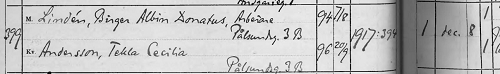 M. Lindén, Birger Albin Donatus, Arbetare 94 7/8
Pålsundsg. 3 B
399 1917:394 1 dec. 8
Kv. Andersson, Tekla Cecilia 96 20/9
Pålsundsg. 3 B